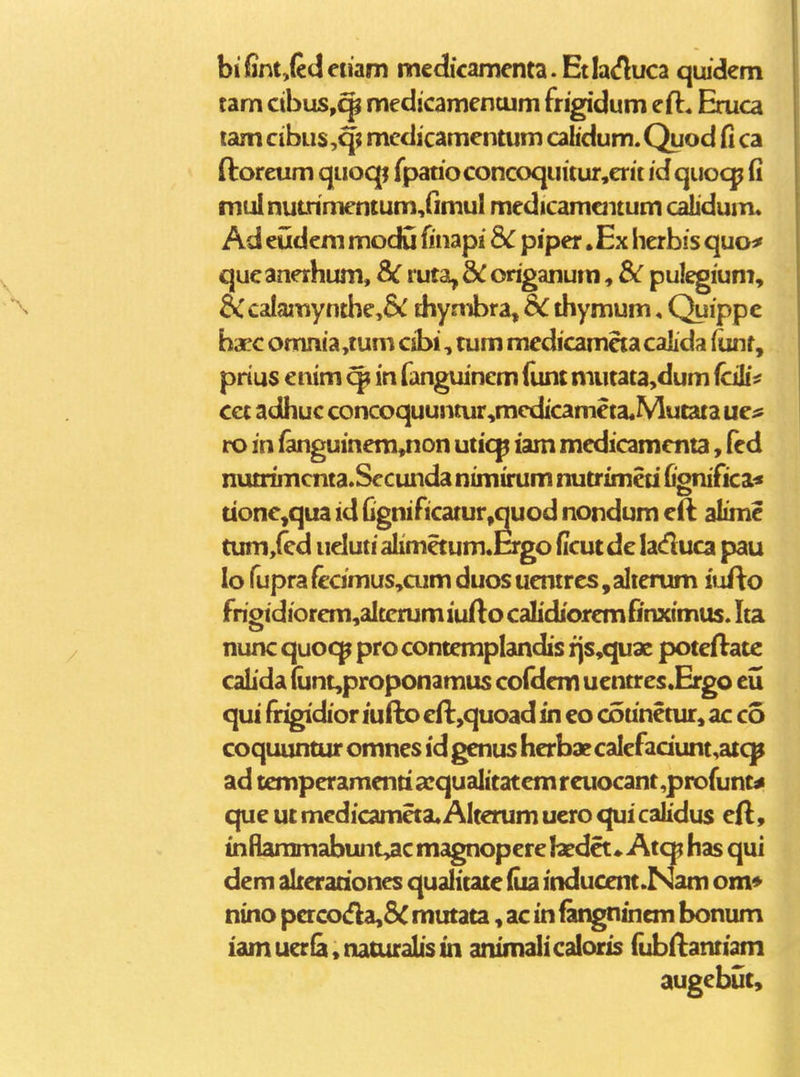 bi ſint, ſed etiam medicamenta. Et lactuca quidem
tam cibus, ꝙ medicamentum frigidum eſt. Eruca
tam cibus, ꝙ medicamentum calidum. Quod ſi ca
ſtoreum quoqꝫ ſpatio concoquitur, erit id quoqꝫ ſi
mul nutrimentum, ſimul medicamentum calidum.
Ad eūdem modū ſinapi & piper. Ex herbis quo⸗
que anethum, & ruta, & origanum, & pulegium,
& calamynthe, & thymbra, & thymum. Quippe
hæc omnia, tum cibi, tum medicamēta calida ſunt,
prius enim ꝙ in ſanguinem ſunt mutata, dum ſcili⸗
cet adhuc concoquuntur, medicamēta. Mutata ue⸗
ro in ſanguinem, non utiqꝫ iam medicamenta, ſed
nutrimenta. Secunda nimirum nutrimēti ſignifica⸗
tione, qua id ſignificatur, quod nondum eſt alimē
tum, ſed ueluti alimētum. Ergo ſicut de lactuca pau
lo ſupra fecimus, cum duos uentres, alterum iuſto
frigidiorem, alterum iuſto calidiorem finximus. Ita
nunc quoqꝫ pro contemplandis ijs, quæ poteſtate
calida ſunt, proponamus coſdem uentres. Ergo eū
qui frigidior iuſto eſt, quoad in eo cōtinētur, ac cō
coquuntur omnes id genus herbæ calefaciunt, atqꝫ
ad temperamenti æqualitatem reuocant, proſunt⸗
que ut medicamēta. Alterum uero qui calidus eſt,
inflammabunt, ac magnopere lædēt. Atqꝫ has qui
dem alterationes qualitate ſua inducent. Nam om⸗
nino percocta, & mutata, ac in ſangninem bonum
iam uerſa, naturalis in animali caloris ſubſtantiam
augebūt,